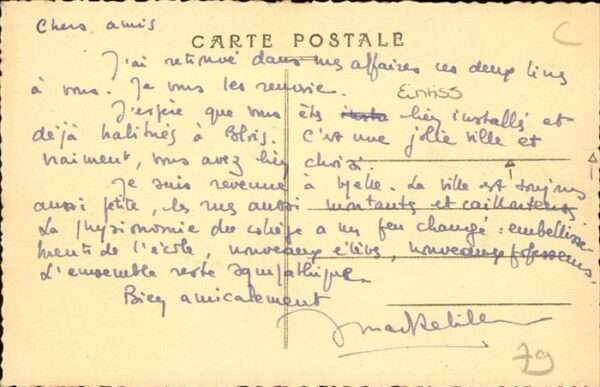 Chers amis
CARTE POSTALE
J'ai retrouvé dans mes affaires ces deux livres
à vous. Je vous les renvoie.
EINTISS
J'espère que vous êtes bien installés et
déjà habitués à Blois. C'est une jolie ville et
vraiment, vous avez bien choisi.
Je suis revenue à. La ville est toujours
aussi petite, les rues aussi montantes et caillouteuses.
La physionomie du collège a un peu changé : embellisse-
ments de l'école, nouveaux élèves, nouveaux professeurs.
L'ensemble reste sympathique.
Bien amicalement
C
79